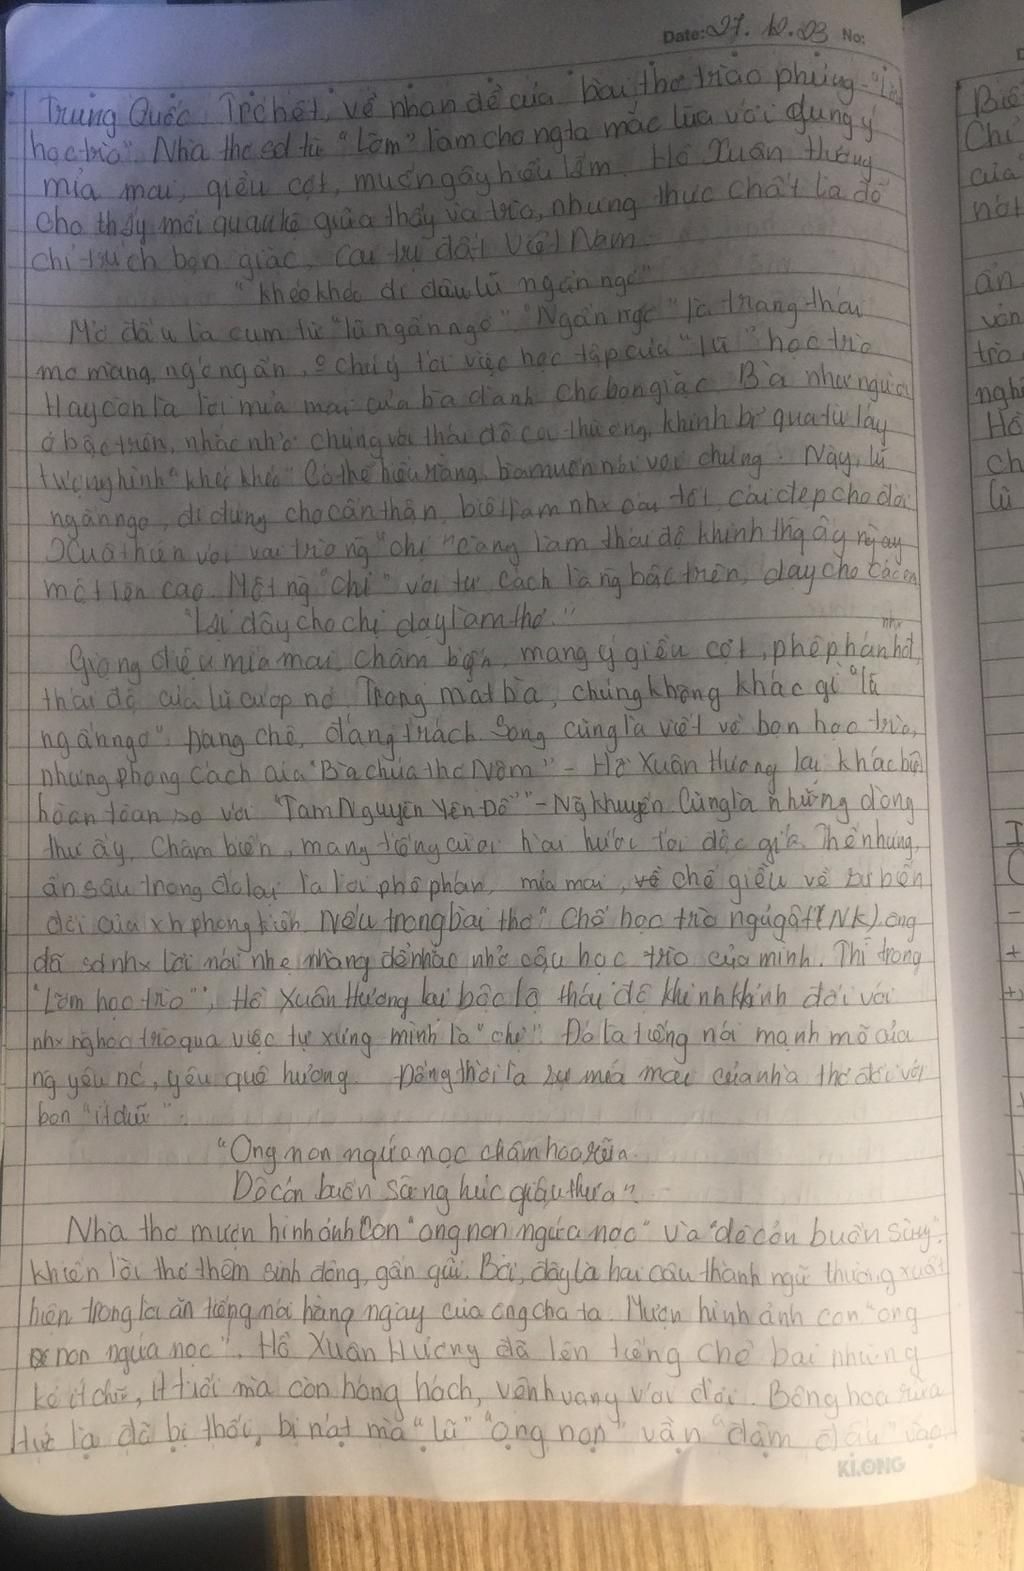 Date: 27.12.23 No:
Trung Quốc. Trc hết, về nhan đề của bài thơ trào phúng - "Lỡm
học trò". Nhà thơ sd từ "Lỡm" làm cho ngta mắc lừa với dụng ý
mỉa mai, giễu cợt, muốn gây hiểu lầm. Hồ Xuân thường
cho thấy mối quan hệ giữa thầy và trò, nhưng thực chất là để
chỉ trích bọn giặc, cai trị đất Việt Nam.
"Khéo khéo đi đâu lũ ngẩn ngơ"
Mở đầu là cụm từ "lũ ngẩn ngơ". "Ngẩn ngơ" là trạng thái
mơ màng, ngớ ngẩn, chú ý tới việc học tập của "lũ" học trò
Hay còn là lời mỉa mai của bà dành cho bọn giặc. Bà như người
ở bậc trên, nhắc nhở chúng với thái độ coi thường, khinh bỉ qua từ láy
tượng hình "khéo khéo". Có thể hiểu rằng, bà muốn nói với chúng: Này, lũ
ngẩn ngơ, đi đứng cho cẩn thận, biết làm nhx điều tốt, cái đẹp cho đời.
Xuất hiện với vai trò ng "chị" càng làm thái độ khinh thg ấy ngày
một lên cao. Một ng "chị" với tư cách là ng bậc trên, dạy cho các em
"Lại đây cho chị dạy làm thơ."
Giọng điệu mỉa mai, châm biếm, mang ý giễu cợt, phê phán nhx hđ,
thái độ của lũ cướp nc. Trong mắt bà, chúng không khác gì "lũ
ngẩn ngơ" đáng chê, đáng trách. Song cũng là viết về bọn học trò,
nhưng phong cách của "Bà chúa thơ Nôm" - Hồ Xuân Hương lại khác biệt
hoàn toàn so với "Tam Nguyên Yên Đổ" - Ng Khuyến. Cũng là những dòng
thơ ấy, châm biếm, mang tiếng cười hài hước tới độc giả. Thế nhưng,
ẩn sâu trong đó lại là lời phê phán, mỉa mai, chế giễu về sự biến
đổi của xh phong kiến. Nếu trong bài thơ "Chế học trò ngủ gật" (NK) ông
đã sd nhx lời nói nhẹ nhàng để nhắc nhở cậu học trò của mình. Thì trong
"Lỡm học trò", Hồ Xuân Hương lại bộc lộ thái độ khinh khỉnh đối với
nhx ng học trò qua việc tự xưng mình là "chị". Đó là tiếng nói mạnh mẽ của
ng yêu nc, yêu quê hương. Đồng thời là sự mỉa mai của nhà thơ đối với
bọn "ít chữ".
"Ong non ngứa nọc châm hoa rữa
Dê cỏn buồn sừng húc giậu thưa".
Nhà thơ mượn hình ảnh con "ong non ngứa nọc" và "dê cỏn buồn sừng".
khiến lời thơ thêm sinh động, gần gũi. Bởi, đây là hai câu thành ngữ thường xuất
hiện trong lời ăn tiếng nói hàng ngày của ông cha ta. Mượn hình ảnh con "ong
non ngứa nọc". Hồ Xuân Hương đã lên tiếng chê bai những
kẻ ít chữ, ít tuổi mà còn hống hách, vênh vang với đời. Bông hoa rữa
tức là đã bị thối, bị nát mà "lũ" "ong non" vẫn "đâm đầu" vào
KLONG
Biể
Chỉ
của
nói
ẩn
vốn
trò
nghi
Hồ
ch
lũ